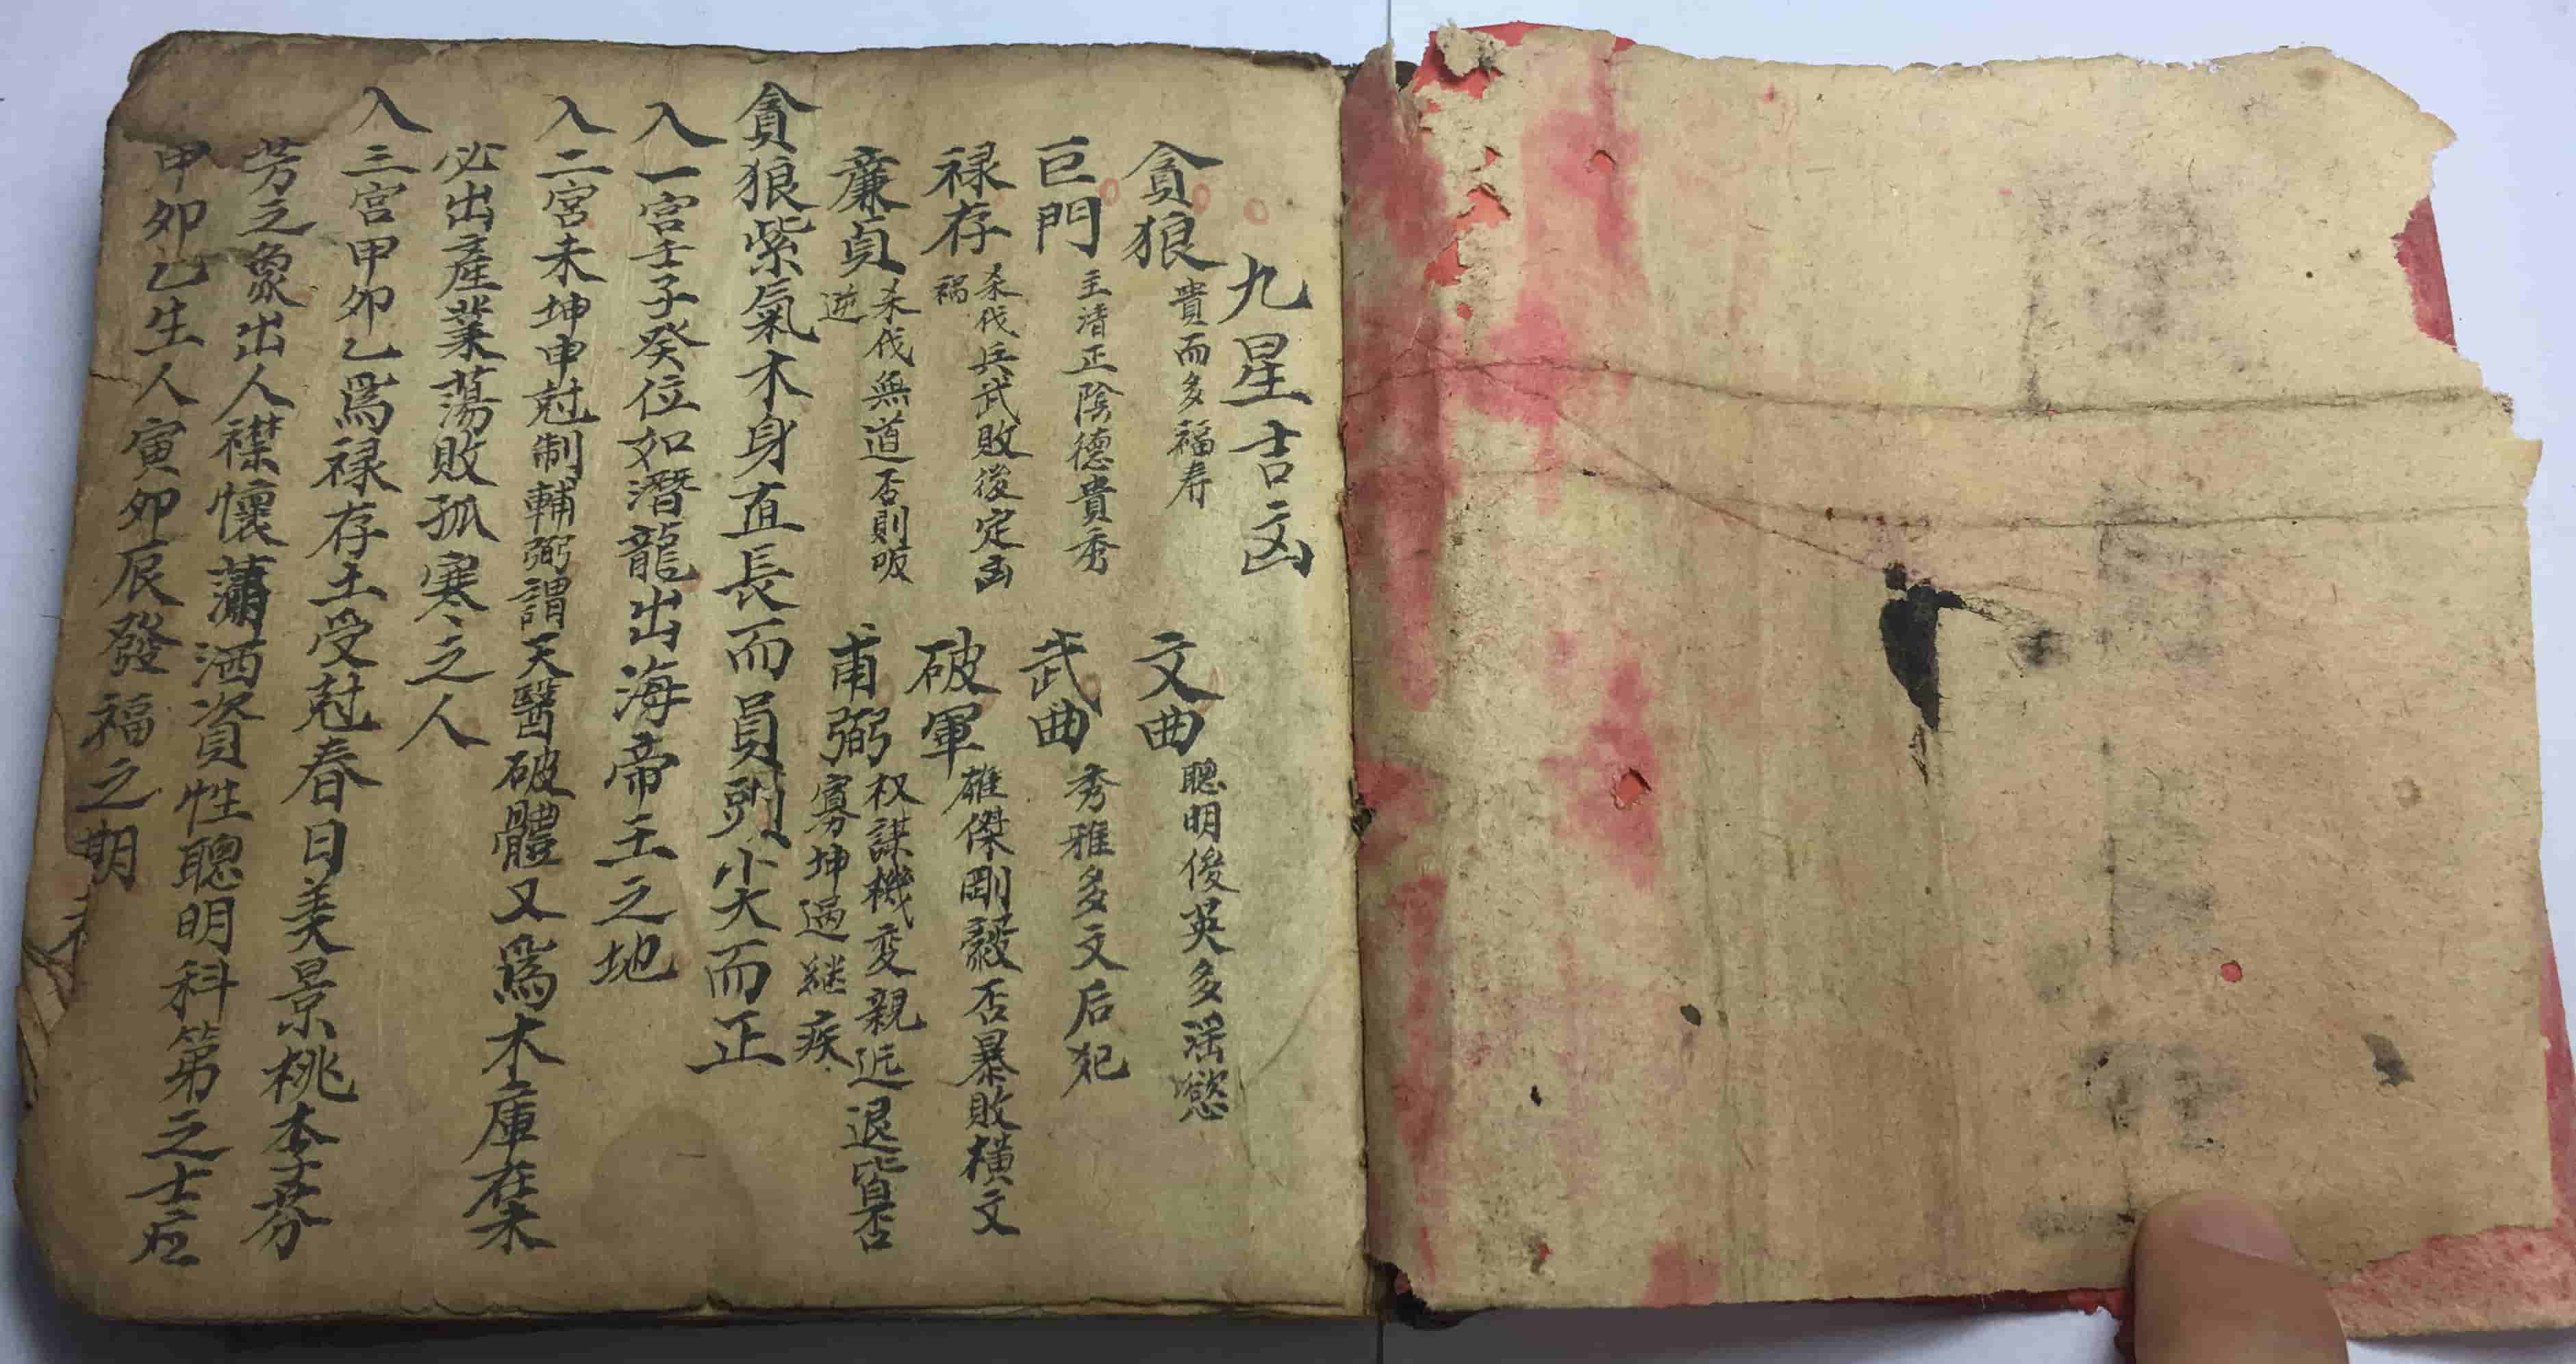 九星吉凶
貪狼 貴而多福寿
文曲 聰明俊英多滛慾
巨門 主清正陰德貴秀
武曲 秀雅多文后犯
禄存 杀伐兵武敗後定凶禍
破軍 雄傑剛毅否暴敗横文
廉貞 杀伐無道否則叛逆
甫弼 权謀機変親近退皆否寡坤過継疾
貪狼紫氣木身直長而員頭尖而正
入一宮壬子癸位如潛龍出海帝王之地
入二宮未坤申尅制輔弼謂天醫破體又爲木庫在未
必出產業蕩敗孤寒之人
入三宮甲卯乙爲禄存土受尅春日美景桃李芬
芳之象出人襟懷瀟洒資性聰明科第之士应
甲卯乙生人寅卯辰發福之期